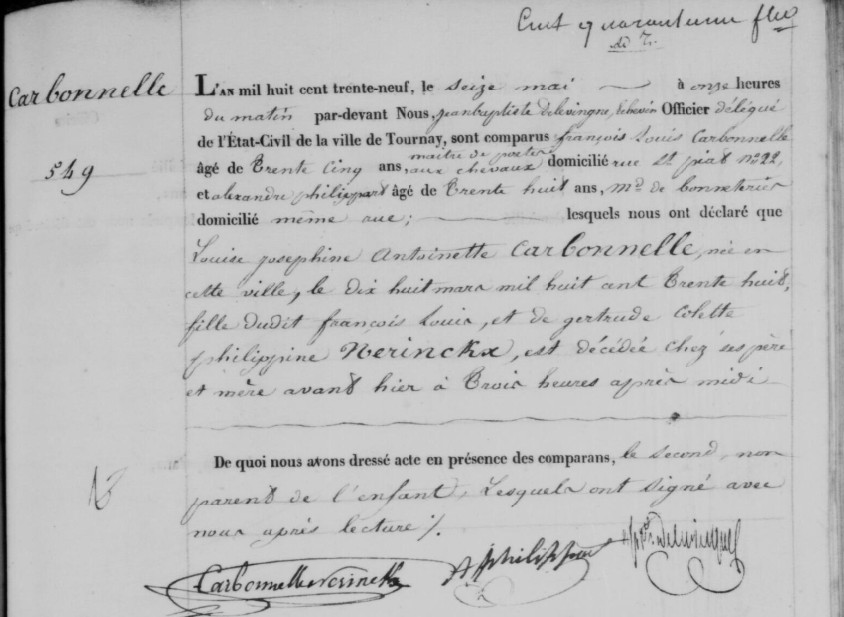 Cent quarantieme flio
Carbonnelle
549
L'AN mil huit cent trente-neuf, le seize mai à onze heures
du matin par-devant Nous, jeanbaptiste delevingne, echevin Officier délégué
de l'État-Civil de la ville de Tournay, sont comparus françois Louis Carbonnelle
âgé de Trente cinq ans, maitre de poste aux chevaux domicilié rue St piat no 22,
et alexandre philippart âgé de Trente huit ans, Md de bonneteries
domicilié même rue; lesquels nous ont déclaré que
Louise josephine Antoinette Carbonnelle, née en
cette ville, le dix huit mars mil huit cent Trente huit,
fille dudit françois Louis, et de gertrude Colette
philippine Nerinckx, est décédée chez ses père
et mère avant hier à Trois heures après midi
De quoi nous avons dressé acte en présence des comparans, le second, non
parent de l'enfant, Lesquels ont signé avec
nous après lecture ./.
Carbonnelle nerinckx
A philippart